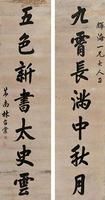 輝海一兄大人正
九霄長滿中秋月
五色新書太史雲
林召棠